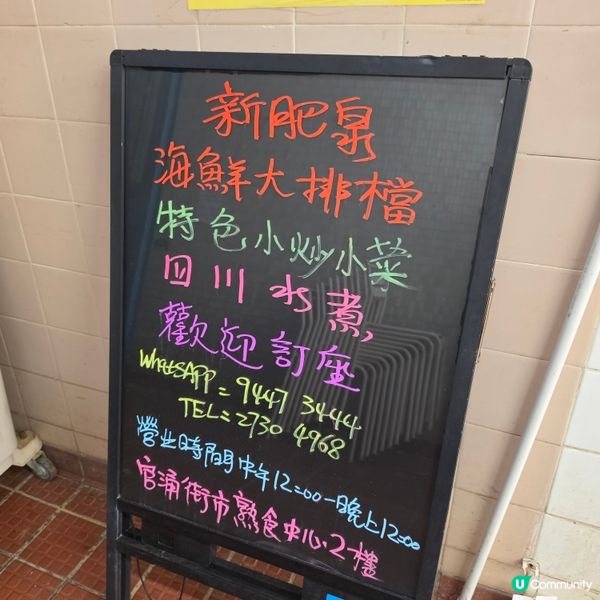 新肥泉
海鮮大排檔
特色小炒小菜
四川水煮
歡迎訂座
WhatsAPP = 9447 3444
TEL = 2730 4968
營业時間中午12:00-晚上12:00
官涌街市熟食中心2樓
U Community